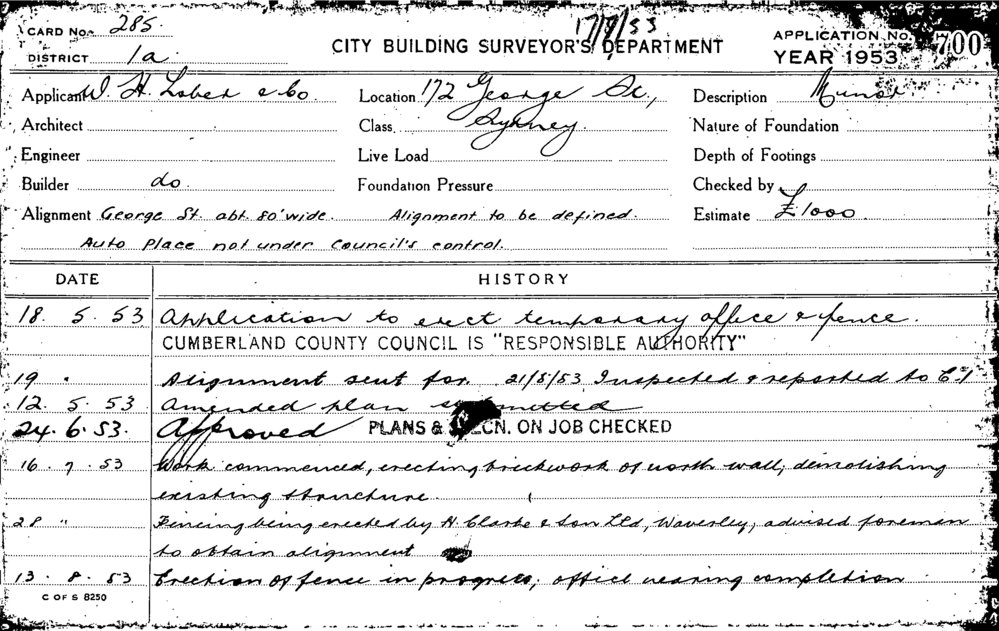 CARD No. 285
17/9/53
CITY BUILDING SURVEYOR'S DEPARTMENT
APPLICATION No. 700
DISTRICT 1a
YEAR 1953
Applicant W. H. Lober & Co. Location 172 George St., Description Minor
Architect Class Sydney. Nature of Foundation
Engineer Live Load Depth of Footings
Builder do. Foundation Pressure Checked by
Alignment George St. abt. 80' wide. Alignment to be defined. Estimate £1000
Auto Place not under Council's control.
DATE HISTORY
18. 5. 53 Application to erect temporary office & fence.
CUMBERLAND COUNTY COUNCIL IS "RESPONSIBLE AUTHORITY"
19 " Alignment sent for. 21/5/53 Inspected & reported to
12. 5. 53 Amended plan submitted
24. 6. 53. Approved PLANS & CN. ON JOB CHECKED
16. 7. 53 Work commenced, erecting brickwork of north wall, demolishing
existing structure.
28 " Fencing being erected by H. Clarke & Son Ltd, Waverley, advised foreman
to obtain alignment
13. 8. 53 Erection of fence in progress, office nearing completion
C OF S 8250